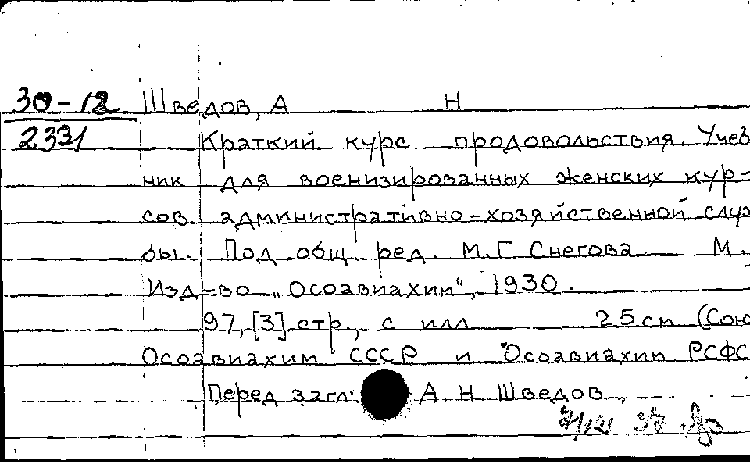 30-12 Шведов, А Н
2331 Краткий курс продовольствия. Учеб
ник для военизированных женских кур-
сов административно-хозяйственной служ
бы. Под общ. ред. М.Г Снегова М.
Изд-во „Осоавиахим", 1930.
97, [3] стр., с илл 25 см (Сою
Осоавиахим СССР и Осоавиахим РСФС
Перед загл. А Н Шведов